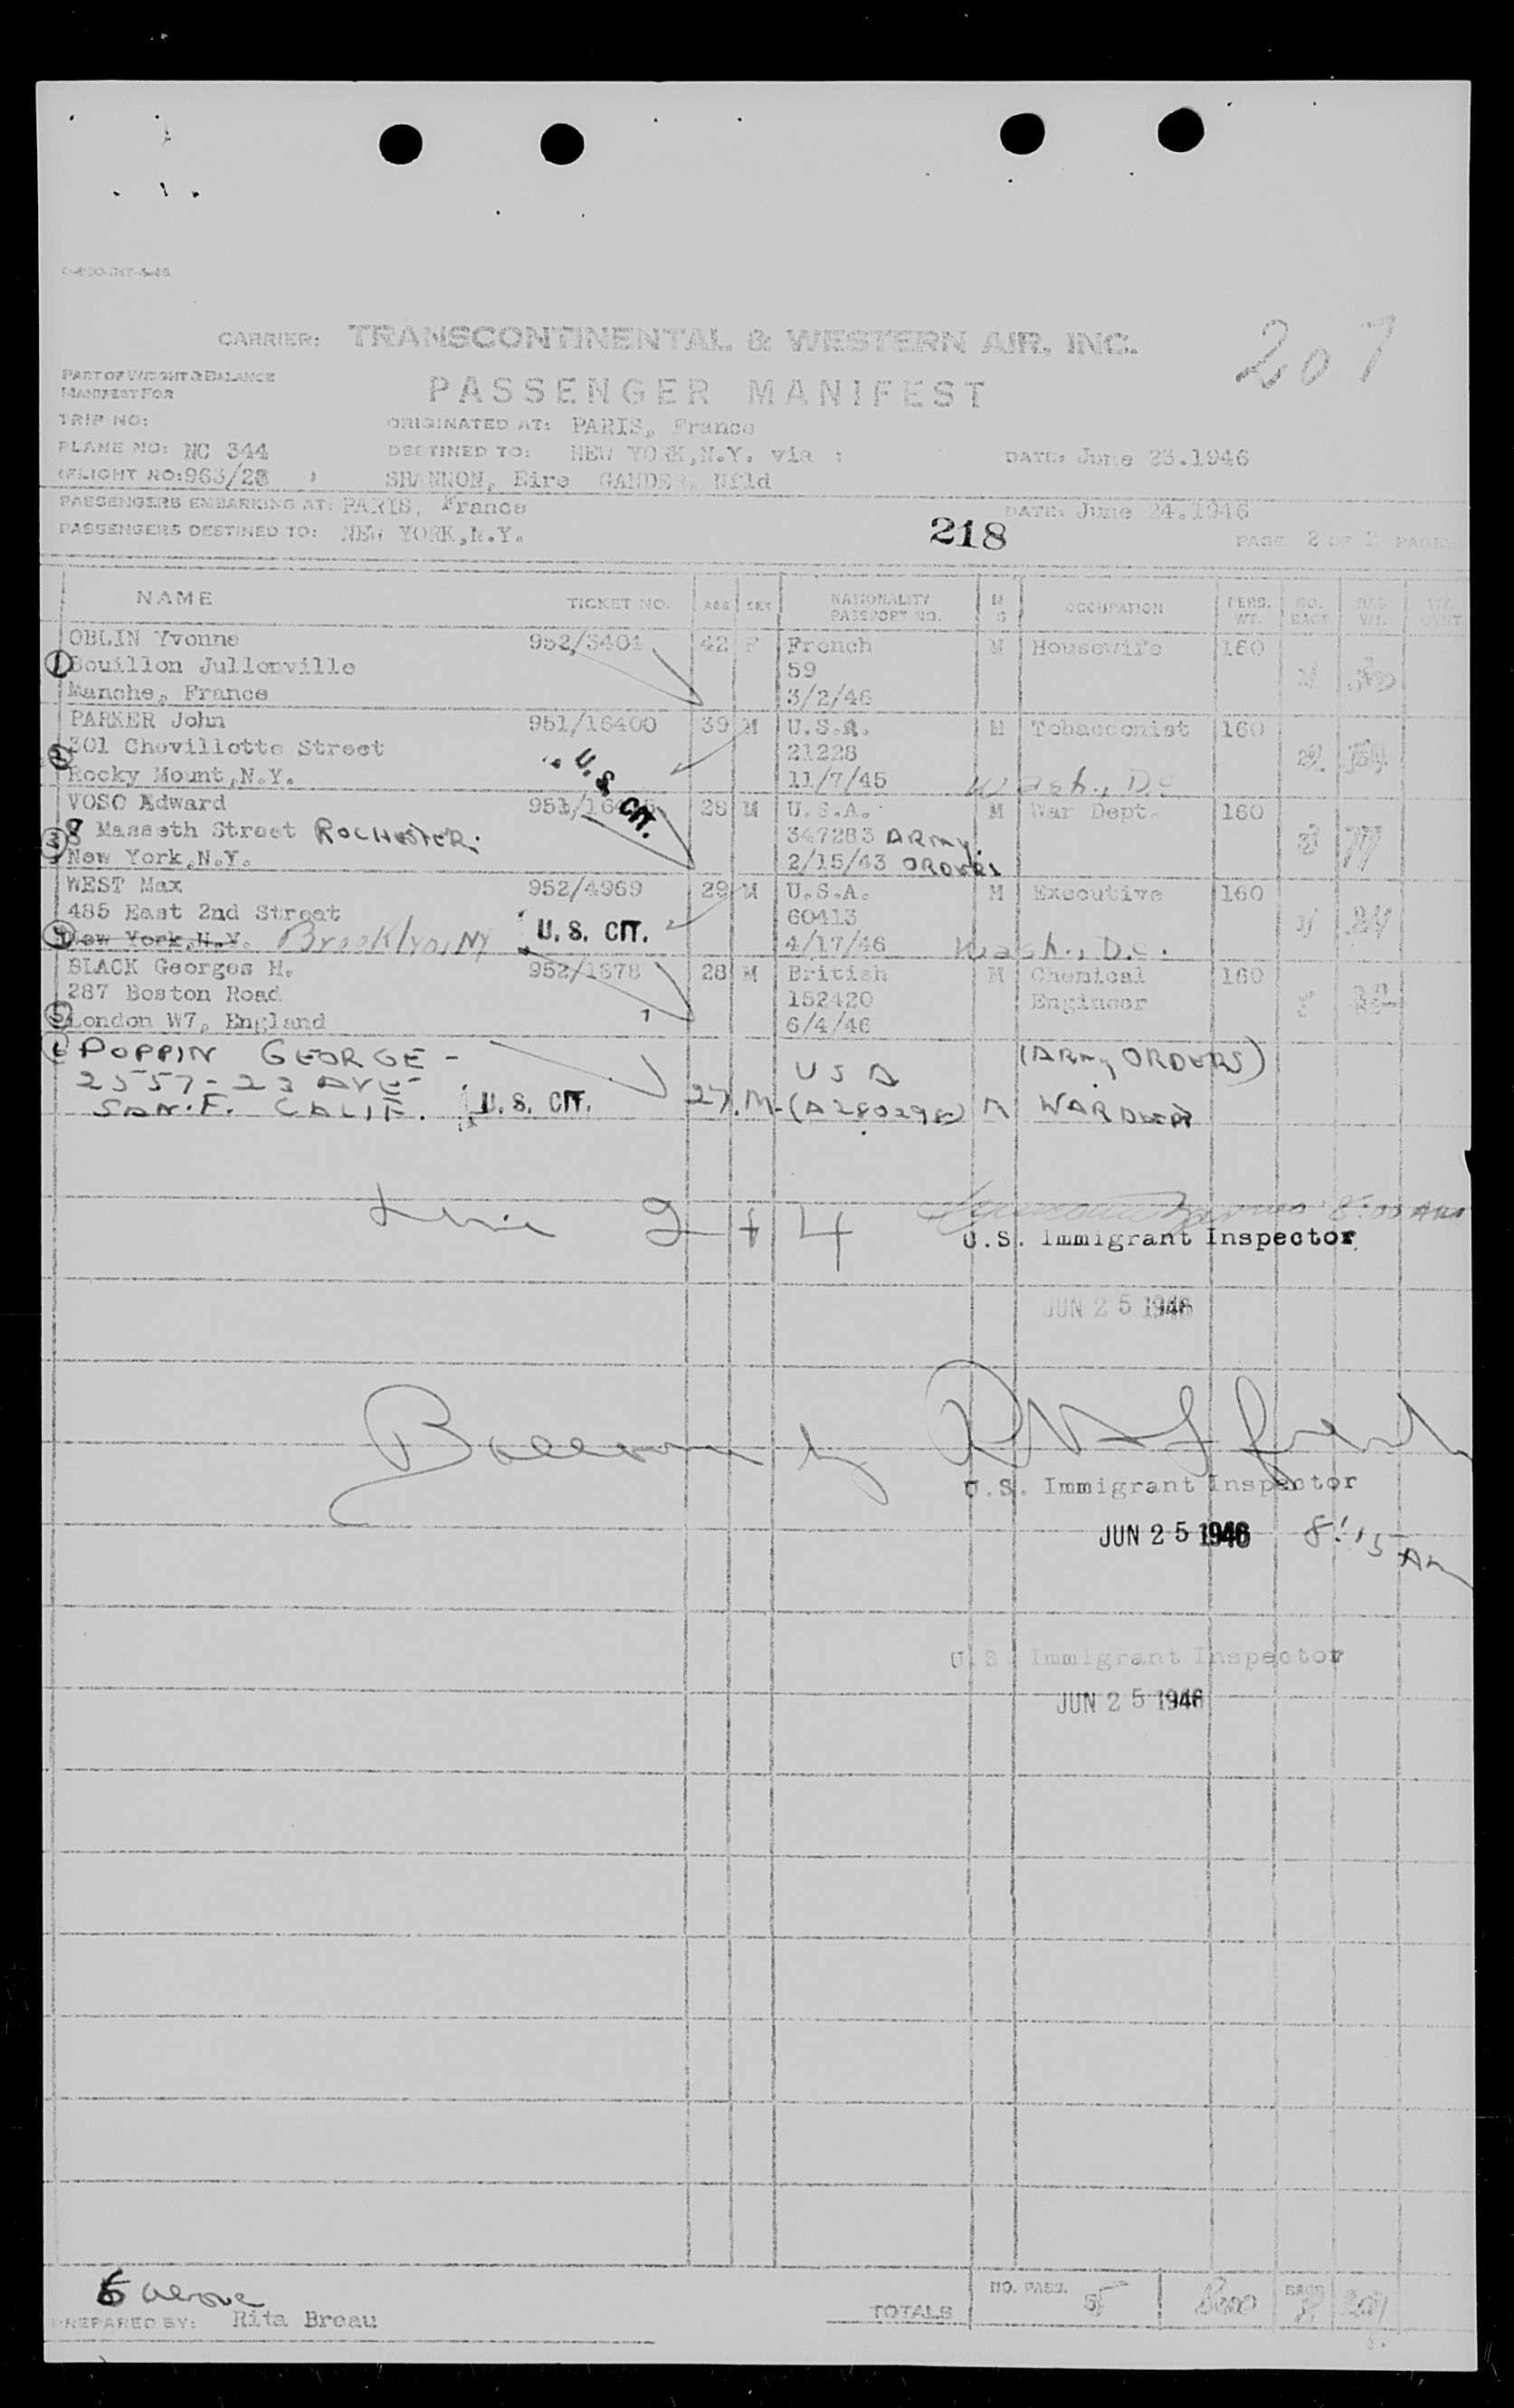 207
CARRIER: TRANSCONTINENTAL & WESTERN AIR, INC.
PART OF WEIGHT & BALANCE
MANIFEST FOR
PASSENGER MANIFEST
TRIP NO:
ORIGINATED AT: PARIS, France
PLANE NO: NC 344
DESTINED TO: NEW YORK,N.Y. via :
DATE: June 23.1946
(FLIGHT NO:963/23 )
SHANNON, Eire GANDER, Nfld
PASSENGERS EMBARKING AT: PARIS, France
DATE: June 24.1946
PASSENGERS DESTINED TO: NEW YORK,N.Y.
218
PAGE 2 OF 2 PAGES
NAME TICKET NO. AGE SEX NATIONALITY PASSPORT NO. M S OCCUPATION PERS. WT. NO. BAGS BAG WT.
OBLIN Yvonne 952/3401 42 F French M Housewife 160
1 Bouillon Jullonville 59
Manche, France 3/2/46
PARKER John 951/16400 39 M U.S.A. M Tobacconist 160
2 301 Chevillotte Street U. S. CIT. 21228
Rocky Mount,N.Y. 11/7/45 Wash., D.C.
VOSO Edward 28 M U.S.A. M War Dept. 160
3 8 Masseth Street ROCHESTER. 347283 ARMY
New York,N.Y. 2/15/43 ORDERS
WEST Max 952/4969 29 M U.S.A. M Executive 160
485 East 2nd Street U. S. CIT. 60413
4 New York,N.Y. Brooklyn, NY 4/17/46 Wash., D.C.
BLACK Georges H. 952/1678 28 M British M Chemical 160
287 Boston Road 152420 Engineer
5 London W7, England 6/4/46
6 POPPIN GEORGE - USA (ARMY ORDERS)
2557-23 AVE-
SAN.F. CALIF. U. S. CIT. 27. M. M WAR DEPT
Line 2 + 4 8:00 AM
U.S. Immigrant Inspector
JUN 25 1946
Balance by
U.S. Immigrant Inspector
JUN 25 1946 8:15 AM
U.S. Immigrant Inspector
JUN 25 1946
6 above
PREPARED BY: Rita Breau
TOTALS NO. PASS. 5 BAGS